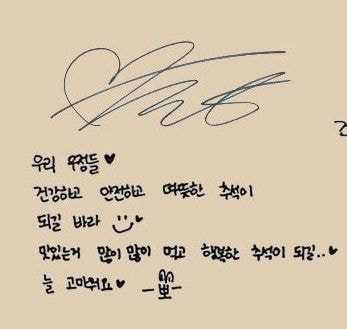 우리 우정들♥
건강하고 안전하고 따뜻한 추석이
되길 바라 ♥
맛있는거 많이많이 먹고 행복한 추석이 되길..♥
늘 고마워요♥ 뽀